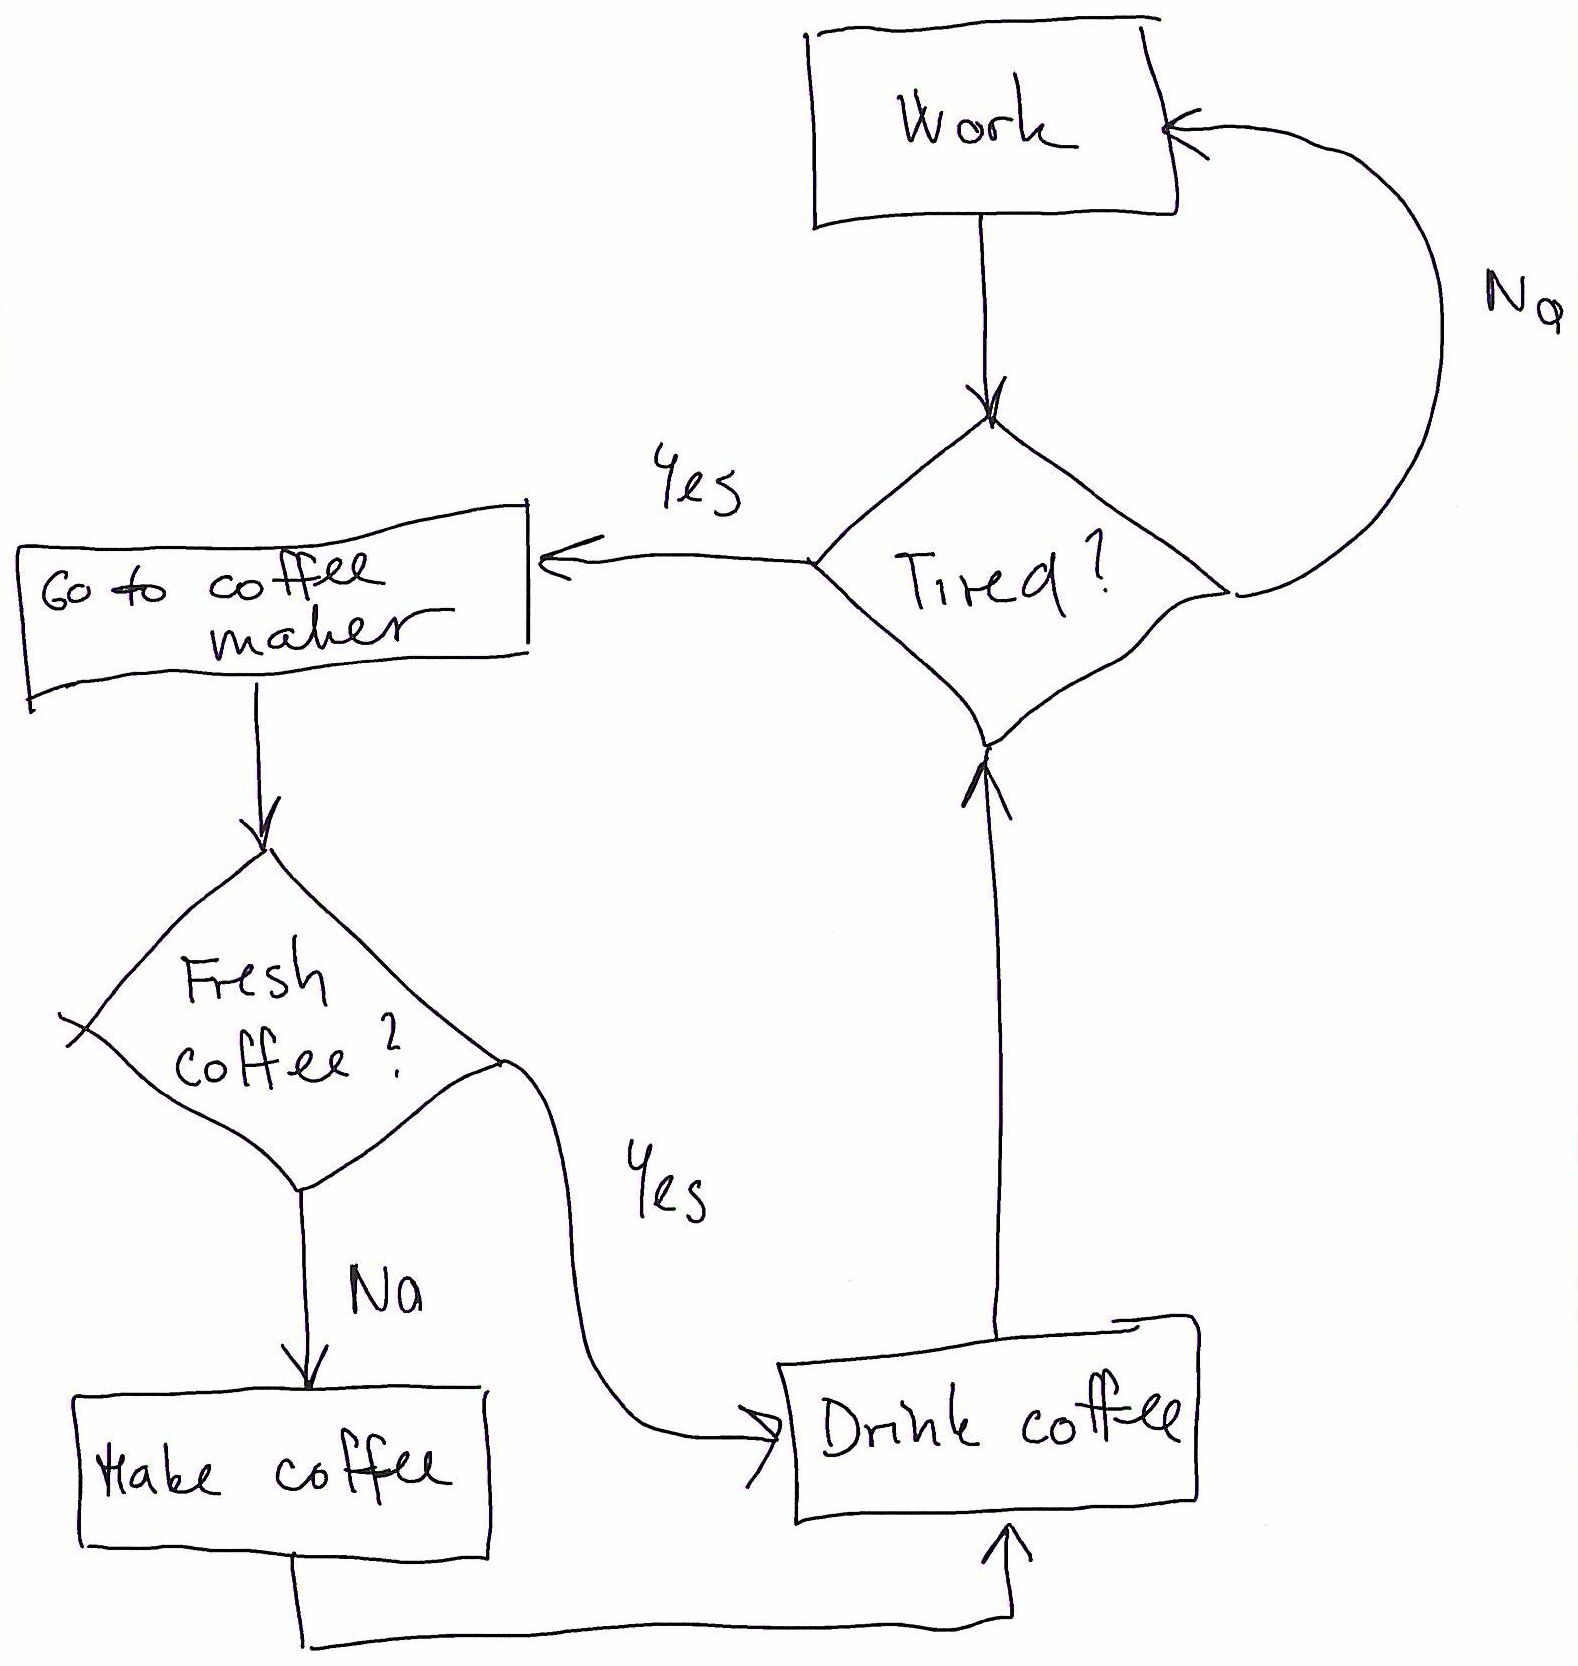 Work
No
Yes
Tired?
Go to coffee
maker
Fresh
coffee?
Yes
No
Make coffee
Drink coffee